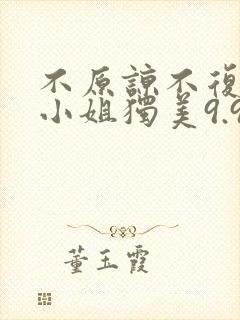 不原諒不復
小姐獨美9.9
董玉霞